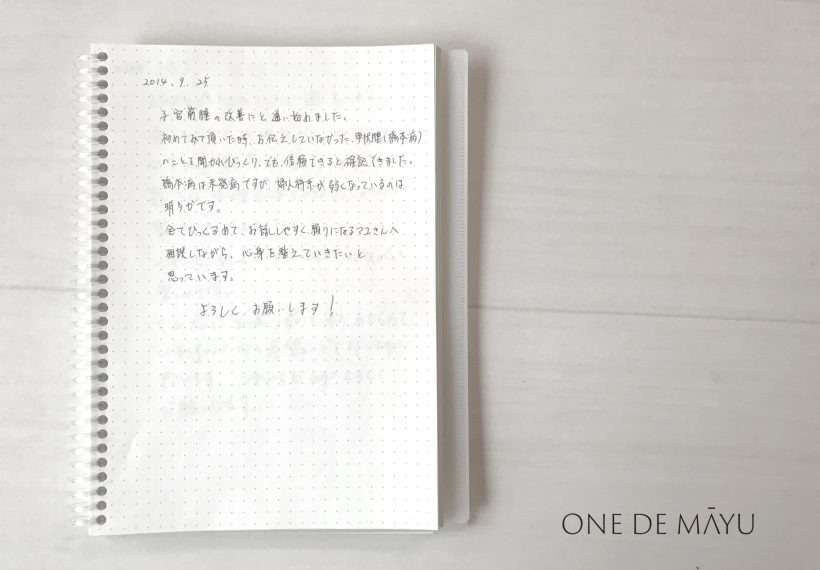 2014. 9. 25
子宮筋腫の改善にと通い始れました。
初めてみて頂いた時、お伝えしていなかった、甲状腺(橋本病)
のことを聞かれびっくり。でも、信頼できると確認できました。
橋本病は未発病ですが、婦人科系が弱くなっているのは
明らかです。
全てひっくるめて、お話ししやすく頼りになるマユさんへ
相談しながら、心身を整えていきたいと
思っています。
よろしく、お願いします!
ONE DE MĀYU